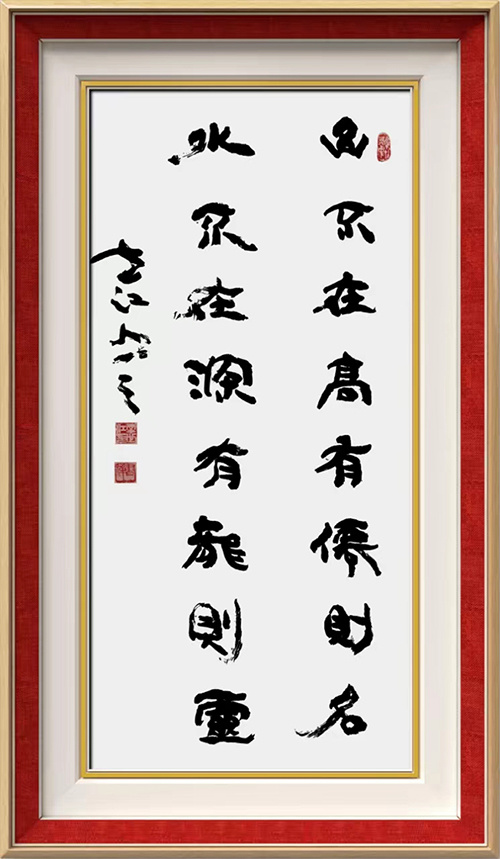 山不在高有僊則名
水不在源有龍則靈